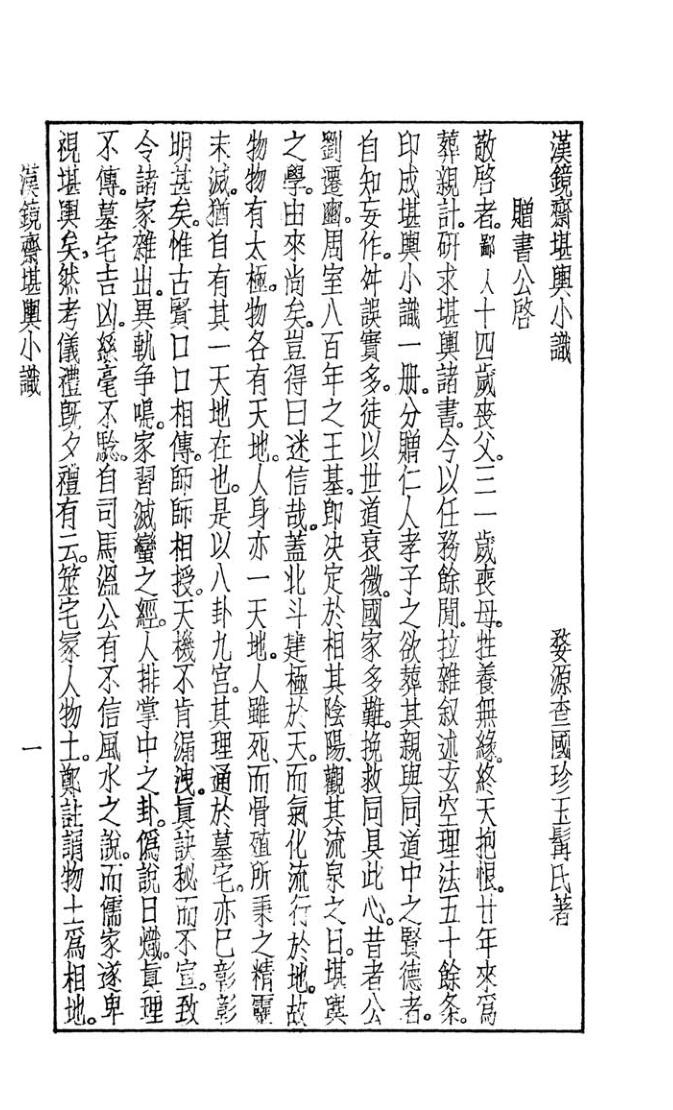 漢鏡齋堪輿小識　婺源查國珍玉髯氏著
贈書公啓
敬啓者。鄙人十四歲喪父。三一歲喪母。牲養無緣。終天抱恨。廿年來爲
葬親計。研求堪輿諸書。令以任務餘閒。拉雜叙述玄空理法五十餘条。
印成堪輿小識一册。分贈仁人孝子之欲葬其親與同道中之賢德者。
自知妄作。舛誤實多。徒以世道衰微。國家多難。挽救同具此心。昔者公
劉遷豳。周室八百年之王基。卽决定於相其陰陽、觀其流泉之日。堪輿
之學。由來尚矣。豈得曰迷信哉。蓋北斗建極於天。而氣化流行於地。故
物物有太極。物各有天地。人身亦一天地。人雖死、而骨殖所秉之精靈
未滅。猶自有其一天地在也。是以八卦九宮。其理通於墓宅。亦已彰彰
明甚矣。惟古賢口口相傳。師師相授。天機不肯漏洩。眞訣秘而不宣。致
令諸家雜出。異軌争鳴。家習滅蠻之經。人排掌中之卦。僞說日熾。眞理
不傳。墓宅吉凶。絲毫不驗。自司馬溫公有不信風水之說。而儒家遂卑
視堪輿矣、然考儀禮旣夕禮有云。筮宅冢人物土。鄭註謂物土爲相地。
漢鏡齋堪輿小識
一